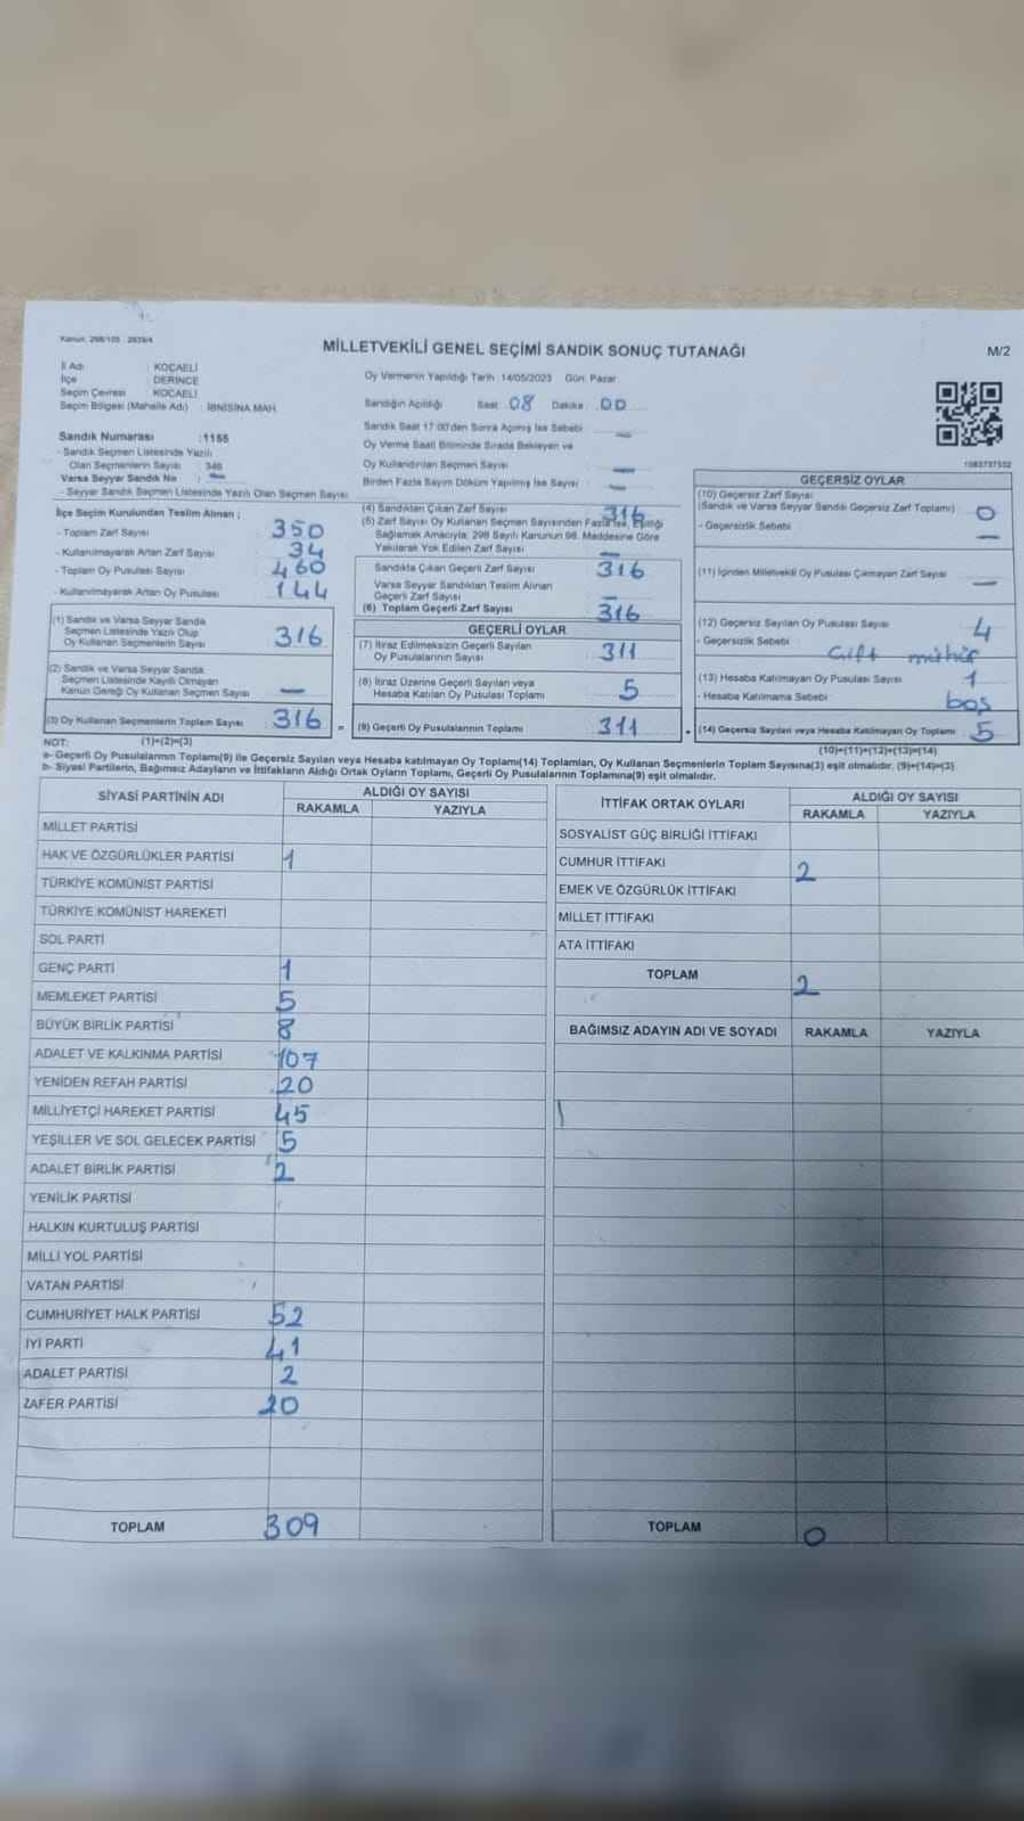 Kanun: 298/105 - 2839/4
MİLLETVEKİLİ GENEL SEÇİMİ SANDIK SONUÇ TUTANAĞI
M/2
İl Adı : KOCAELİ
İlçe : DERİNCE
Seçim Çevresi : KOCAELİ
Seçim Bölgesi (Mahalle Adı) : İBNİSİNA MAH.
Oy Vermenin Yapıldığı Tarih : 14/05/2023 Gün: Pazar
Sandığın Açıldığı Saat: 08 Dakika : 00
Sandık Saat 17:00'den Sonra Açılmış İse Sebebi —
Oy Verme Saati Bitiminde Sırada Bekleyen ve
Oy Kullandırılan Seçmen Sayısı —
Birden Fazla Sayım Döküm Yapılmış İse Sayısı —
Sandık Numarası : 1155
- Sandık Seçmen Listesinde Yazılı
Olan Seçmenlerin Sayısı : 346
Varsa Seyyar Sandık No : —
- Seyyar Sandık Seçmen Listesinde Yazılı Olan Seçmen Sayısı
İlçe Seçim Kurulundan Teslim Alınan ;
- Toplam Zarf Sayısı 350
- Kullanılmayarak Artan Zarf Sayısı 34
- Toplam Oy Pusulası Sayısı 460
- Kullanılmayarak Artan Oy Pusulası 144
(1) Sandık ve Varsa Seyyar Sandık
Seçmen Listesinde Yazılı Olup
Oy Kullanan Seçmenlerin Sayısı 316
(2) Sandık ve Varsa Seyyar Sandık
Seçmen Listesinde Kayıtlı Olmayan
Kanun Gereği Oy Kullanan Seçmen Sayısı —
(3) Oy Kullanan Seçmenlerin Toplam Sayısı 316
(1)+(2)=(3)
(4) Sandıktan Çıkan Zarf Sayısı 316
(5) Zarf Sayısı Oy Kullanan Seçmen Sayısından Fazla İse, Eşitliği
Sağlamak Amacıyla, 298 Sayılı Kanunun 98. Maddesine Göre
Yakılarak Yok Edilen Zarf Sayısı —
Sandıkta Çıkan Geçerli Zarf Sayısı 316
Varsa Seyyar Sandıktan Teslim Alınan
Geçerli Zarf Sayısı —
(6) Toplam Geçerli Zarf Sayısı 316
GEÇERLİ OYLAR
(7) İtiraz Edilmeksizin Geçerli Sayılan
Oy Pusulalarının Sayısı 311
(8) İtiraz Üzerine Geçerli Sayılan veya
Hesaba Katılan Oy Pusulası Toplamı 5
(9) Geçerli Oy Pusulalarının Toplamı 311
GEÇERSİZ OYLAR
(10) Geçersiz Zarf Sayısı
(Sandık ve Varsa Seyyar Sandığı Geçersiz Zarf Toplamı) 0
- Geçersizlik Sebebi —
(11) İçinden Milletvekili Oy Pusulası Çıkmayan Zarf Sayısı —
(12) Geçersiz Sayılan Oy Pusulası Sayısı 4
- Geçersizlik Sebebi Çift mühür
(13) Hesaba Katılmayan Oy Pusulası Sayısı 1
- Hesaba Katılmama Sebebi boş
(14) Geçersiz Sayılan veya Hesaba Katılmayan Oy Toplamı 5
(10)+(11)+(12)+(13)=(14)
NOT:
a- Geçerli Oy Pusulalarının Toplamı(9) ile Geçersiz Sayılan veya Hesaba katılmayan Oy Toplamı(14) Toplamları, Oy Kullanan Seçmenlerin Toplam Sayısına(3) eşit olmalıdır. (9)+(14)=(3)
b- Siyasi Partilerin, Bağımsız Adayların ve İttifakların Aldığı Ortak Oyların Toplamı, Geçerli Oy Pusulalarının Toplamına(9) eşit olmalıdır.
SİYASİ PARTİNİN ADI ALDIĞI OY SAYISI
RAKAMLA YAZIYLA
MİLLET PARTİSİ
HAK VE ÖZGÜRLÜKLER PARTİSİ 1
TÜRKİYE KOMÜNİST PARTİSİ
TÜRKİYE KOMÜNİST HAREKETİ
SOL PARTİ
GENÇ PARTİ 1
MEMLEKET PARTİSİ 5
BÜYÜK BİRLİK PARTİSİ 8
ADALET VE KALKINMA PARTİSİ 107
YENİDEN REFAH PARTİSİ 20
MİLLİYETÇİ HAREKET PARTİSİ 45
YEŞİLLER VE SOL GELECEK PARTİSİ 5
ADALET BİRLİK PARTİSİ 2
YENİLİK PARTİSİ
HALKIN KURTULUŞ PARTİSİ
MİLLİ YOL PARTİSİ
VATAN PARTİSİ
CUMHURİYET HALK PARTİSİ 52
İYİ PARTİ 41
ADALET PARTİSİ 2
ZAFER PARTİSİ 20
TOPLAM 309
İTTİFAK ORTAK OYLARI ALDIĞI OY SAYISI
RAKAMLA YAZIYLA
SOSYALİST GÜÇ BİRLİĞİ İTTİFAKI
CUMHUR İTTİFAKI 2
EMEK VE ÖZGÜRLÜK İTTİFAKI
MİLLET İTTİFAKI
ATA İTTİFAKI
TOPLAM 2
BAĞIMSIZ ADAYIN ADI VE SOYADI RAKAMLA YAZIYLA
TOPLAM 0